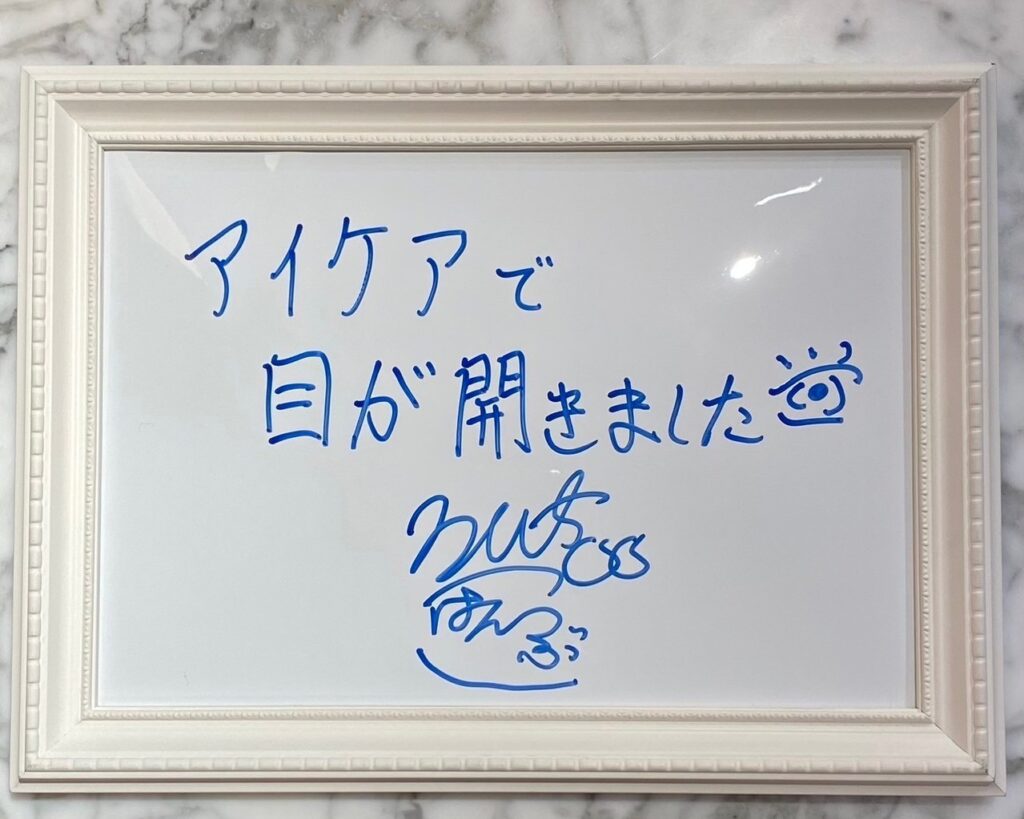 アイケアで
目が開きました
はんぶ